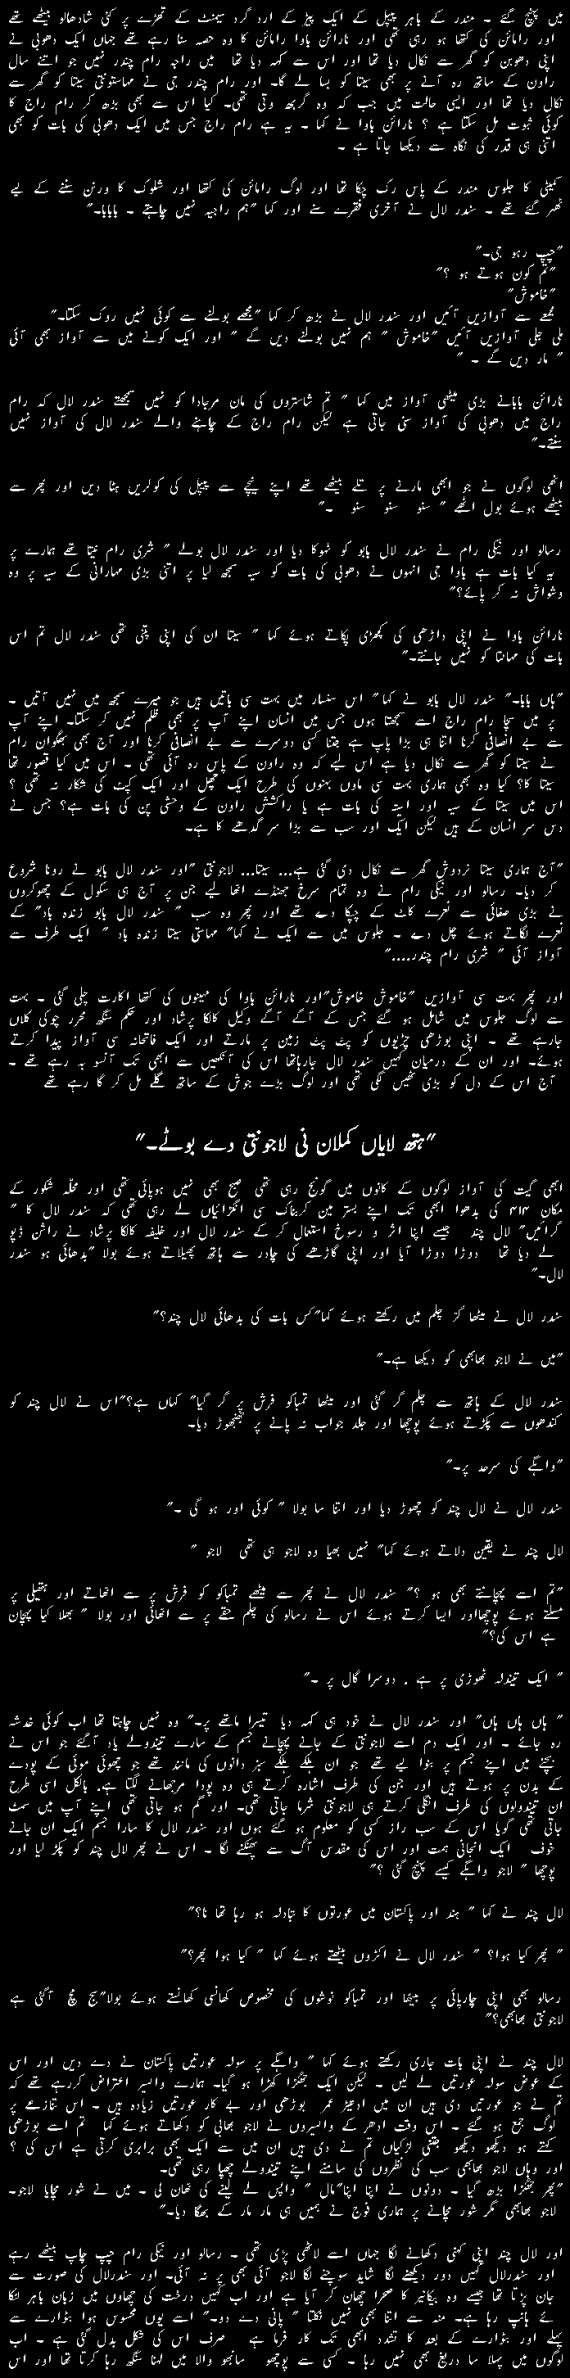 میں پہنچ گئے ۔ مندر کے باہر پیپل کے ایک پیڑ کے ارد گرد سیمنٹ کے تھڑے پر کئی شردھالو بیٹھے تھے
اور رامائن کی کتھا ہو رہی تھی اور نارائن باوا رامائن کا وہ حصہ سنا رہے تھے جہاں ایک دھوبی نے
اپنی دھوبن کو گھر سے نکال دیا تھا اور اس سے کہہ دیا تھا میں راجہ رام چندر نہیں جو اتنے سال
راون کے ساتھ رہ آنے پر بھی سیتا کو بسا لے گا۔ اور رام چندر جی نے مہاستونتی سیتا کو گھر سے
نکال دیا تھا اور ایسی حالت میں جب کہ وہ گربھ وتی تھی۔ کیا اس سے بھی بڑھ کر رام راج کا
کوئی ثبوت مل سکتا ہے ؟ نارائن باوا نے کہا ۔ یہ ہے رام راج جس میں ایک دھوبی کی بات کو بھی
اتنی ہی قدر کی نگاہ سے دیکھا جاتا ہے ۔
کمیٹی کا جلوس مندر کے پاس رک چکا تھا اور لوگ رامائن کی کتھا اور شلوک کا ورنن سننے کے لیے
ٹھہر گئے تھے ۔ سندر لال نے آخری فقرے سنے اور کہا "ہم راجیہ نہیں چاہتے ۔ بابابا۔"
"چپ رہو جی۔"
"تم کون ہوتے ہو ؟"
"خاموش"
مجمعے سے آوازیں آئیں اور سندر لال نے بڑھ کر کہا "مجھے بولنے سے کوئی نہیں روک سکتا۔"
ملی جلی آوازیں آئیں "خاموش " ہم نہیں بولنے دیں گے " اور ایک کونے میں سے آواز بھی آئی
" مار دیں گے ۔ "
نارائن بابانے بڑی میٹھی آواز میں کہا " تم شاستروں کی مان مرجادا کو نہیں سمجھتے سندر لال کہ رام
راج میں دھوبی کی آواز سنی جاتی ہے لیکن رام راج کے چاہنے والے سندر لال کی آواز نہیں
سنتے۔"
انھی لوگوں نے جو ابھی مارنے پر تلے بیٹھے تھے اپنے نیچے سے پیپل کی گولریں ہٹا دیں اور پھر سے
بیٹھتے ہوئے بول اٹھے " سنو سنو سنو ۔"
رسالو اور نیکی رام نے سندر لال بابو کو ٹہوکا دیا اور سندر لال بولے " شری رام نیتا تھے ہمارے پر
یہ کیا بات ہے باوا جی انہوں نے دھوبی کی بات کو سیہ سمجھ لیا پر اتنی بڑی مہارانی کے سیہ پر وہ
وشواش نہ کر پائے؟"
نارائن باوا نے اپنی داڑھی کی کھچڑی پکاتے ہوئے کہا " سیتا ان کی اپنی پتنی تھی سندر لال تم اس
بات کی مہانتا کو نہیں جانتے۔"
"ہاں بابا۔" سندر لال بابو نے کہا" اس سنسار میں بہت سی باتیں ہیں جو میرے سمجھ میں نہیں آتیں ۔
پر میں سچا رام راج اسے سمجھتا ہوں جس میں انسان اپنے آپ پر بھی ظلم نہیں کر سکتا۔ اپنے آپ
سے بے انصافی کرنا اتنا ہی بڑا پاپ ہے جتنا کسی دوسرے سے بے انصافی کرنا اور آج بھی بھگوان رام
نے سیتا کو گھر سے نکال دیا ہے اس لیے کہ وہ راون کے پاس رہ آئی تھی ۔ اس میں کیا قصور تھا
سیتا کا؟ کیا وہ بھی ہماری بہت سی ماوں بہنوں کی طرح ایک چھل اور ایک کپٹ کی شکار نہ تھی ؟
اس میں سیتا کے سیہ اور اسیتہ کی بات ہے یا راکشش راون کے وحشی پن کی بات ہے؟ جس نے
دس سر انسان کے ہیں لیکن ایک اور سب سے بڑا سر گدھے کا ہے۔
"آج ہماری سیتا نردوش گھر سے نکال دی گئی ہے... سیتا... لاجونتی "اور سندر لال بابو نے رونا شروع
کر دیا۔ رسالو اور نیکی رام نے وہ تمام سرخ جھنڈے اٹھا لیے جن پر آج ہی سکول کے چھوکروں
نے بڑی صفائی سے نعرے کاٹ کے چپکا دے تھے اور پھر وہ سب " سندر لال بابو زندہ باد" کے
نعرے لگاتے ہوئے چل دے ۔ جلوس میں سے ایک نے کہا" مہاستی سیتا زندہ باد " ایک طرف سے
آواز آئی " شری رام چندر...."
اور پھر بہت سی آوازیں "خاموش خاموش"اور نارائن باوا کی مہینوں کی کتھا اکارت چلی گئی ۔ بہت
سے لوگ جلوس میں شامل ہو گئے جس کے آگے آگے وکیل کالکا پرشاد اور حکم سنگھ محرر چوکی کلاں
جارہے تھے ۔ اپنی بوڑھی چڑیوں کو پٹ پٹ زمین پر مارتے اور ایک فاتحانہ سی آواز پیدا کرتے
ہوئے۔ اور ان کے درمیان کہیں سندر لال جارہاتھا اس کی آنکھیں سے ابھی تک آنسو بہ رہے تھے ۔
آج اس کے دل کو بڑی ٹھیس لگی تھی اور لوگ بڑے جوش کے ساتھ گلے مل کر گا رہے تھے
"ہتھ لایاں کملان نی لاجونتی دے بوٹے۔"
ابھی گیت کی آواز لوگوں کے کانوں میں گونج رہی تھی صبح بھی نہیں ہوپائی تھی اور محلہ شکور کے
مکان ۴۱۴ کی بدھوا ابھی تک اپنے بستر مین کربناک سی انگڑائیاں لے رہی تھی کہ سندر لال کا "
گرائیں" لال چند جسے اپنا اثر و رسوخ استعمال کر کے سندر لال اور خلیفہ کالکا پرشاد نے راشن ڈپو
لے دیا تھا دوڑا دوڑا آیا اور اپنی گاڑھے کی چادر سے ہاتھ پھیلاتے ہوئے بولا "بدھائی ہو سندر
لال۔"
سندر لال نے میٹھا گڑ چلم میں رکھتے ہوئے کہا"کس بات کی بدھائی لال چند؟"
"میں نے لاجو بھابھی کو دیکھا ہے۔"
سندر لال کے ہاتھ سے چلم گر گئی اور میٹھا تمباکو فرش پر گر گیا" کہاں ہے؟"اس نے لال چند کو
کندھوں سے پکڑتے ہوئے پوچھا اور جلد جواب نہ پانے پر جھنجھوڑ دیا۔
"واہگے کی سرحد پر۔"
سندر لال نے لال چند کو چھوڑ دیا اور اتنا سا بولا " کوئی اور ہو گی ۔"
لال چند نے یقین دلاتے ہوئے کہا" نہیں بھیا وہ لاجو ہی تھی لاجو "
"تم اسے پہچانتے بھی ہو ؟" سندر لال نے پھر سے میٹھے تمباکو کو فرش پر سے اٹھاتے اور ہتھیلی پر
مسلتے ہوئے پوچھااور ایسا کرتے ہوئے اس نے رسالو کی چلم حقے پر سے اٹھائی اور بولا " بھلا کیا پہچان
ہے اس کی؟"
" ایک تیندلہ ٹھوڑی پر ہے . دوسرا گال پر ۔"
" ہاں ہاں ہاں" اور سندر لال نے خود ہی کہہ دیا تیسرا ماتھے پر۔" وہ نہیں چاہتا تھا اب کوئی خدشہ
رہ جائے ۔ اور ایک دم اسے لاجونتی کے جانے پہچانے جسم کے سارے تیندولے یاد آگئے جو اس نے
بچپنے میں اپنے جسم پر بنوا لیے تھے جو ان ہلکے ہلکے سبز دانوں کی مانند تھے جو چھوئی موئی کے پودے
کے بدن پر ہوتے ہیں اور جن کی طرف اشارہ کرتے ہی وہ پودا مرجھانے لگتا ہے۔ بالکل اسی طرح
ان تیندولوں کی طرف انگلی کرتے ہی لاجونتی شرما جاتی تھی۔ اور گم ہو جاتی تھی اپنے آپ میں سمٹ
جاتی تھی گویا اس کے سب راز کسی کو معلوم ہو گئے ہوں اور سندر لال کا سارا جسم ایک ان جانے
خوف ایک انجانی ہمت اور اس کی مقدس آگ سے پھنکنے لگا ۔ اس نے پھر لال چند کو پکڑ لیا اور
پوچھا " لاجو واہگے کیسے پہنچ گئی ؟"
لال چند نے کہا " ہند اور پاکستان میں عورتوں کا تبادلہ ہو رہا تھا نا؟"
" پھر کیا ہوا؟ " سندر لال نے اکڑوں بیٹھتے ہوئے کہا " کیا ہوا پھر؟"
رسالو بھی اپنی چارپائی پر بیٹھا اور تمباکو نوشوں کی مخصوص کھانسی کھانستے ہوئے بولا"سچ مچ آگئی ہے
لاجونتی بھابھی؟"
لال چند نے اپنی بات جاری رکھتے ہوئے کہا " واہگے پر سولہ عورتیں پاکستان نے دے دیں اور اس
کے عوض سولہ عورتیں لے لیں ۔ لیکن ایک جھگڑا کھڑا ہو گیا۔ ہمارے والنٹیر اعتراض کررہے تھے کہ
تم نے جو عورتیں دی ہیں ان میں ادھیڑ عمر بوڑھی اور بے کار عورتیں زیادہ ہیں ۔ اس تنازعے پر
لوگ جمع ہو گئے ۔ اس وقت ادھر کے والنٹیروں نے لاجو بھابی کو دکھاتے ہوئے کہا تم اسے بوڑھی
کہتے ہو دیکھو دیکھو جتنی لڑکیاں تم نے دی ہیں ان میں سے ایک بھی برابری کرتی ہے اس کی ؟
اور وہاں لاجو بھابھی سب کی نظروں کی سامنے اپنے تیندولے چھپا رہی تھی۔
"پھر جھگڑا بڑھ گیا ۔ دونوں نے اپنا اپنا"مال " واپس لے لینے کی ٹھان لی ۔ میں نے شور مچایا لاجو۔
لاجو بھابھی مگر شور مچانے پر ہماری فوج نے ہمیں ہی مار مار کے بھگا دیا۔"
اور لال چند اپنی کہنی دکھانے لگا جہاں اسے لاٹھی پڑی تھی ۔ رسالو اور نیکی رام چپ چاپ بیٹھے رہے
اور سندرلال کہیں دور دیکھنے لگا شاید سوچنے لگا لاجو آئی بھی پر نہ آئی۔ اور سندرلال کی صورت سے
جان پڑتا تھا جیسے وہ بیکانیر کا صحرا چھان کر آیا ہے اور اب کہیں درخت کی چھاوں میں زبان باہر لٹکا
ئے ہانپ رہا ہے۔ منہ سے اتنا بھی نہیں نکلتا " پانی دے دو۔" اسے یوں محسوس ہوا بٹوارے سے
پہلے اور بٹوارے کے بعد کا تشدد ابھی تک کار فرما ہے صرف اس کی شکل بدل گئی ہے ۔ اب
لوگوں میں پہلا سا دریغ بھی نہیں رہا ۔ کسی سے پوچھو سانبھو والا میں لہنا سنگھ رہا کرتا تھا اور اس